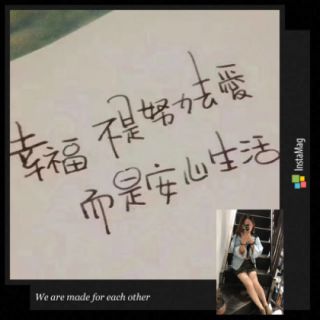 幸福 不是努力去愛
而是安心生活
InstaMag
We are made for each other